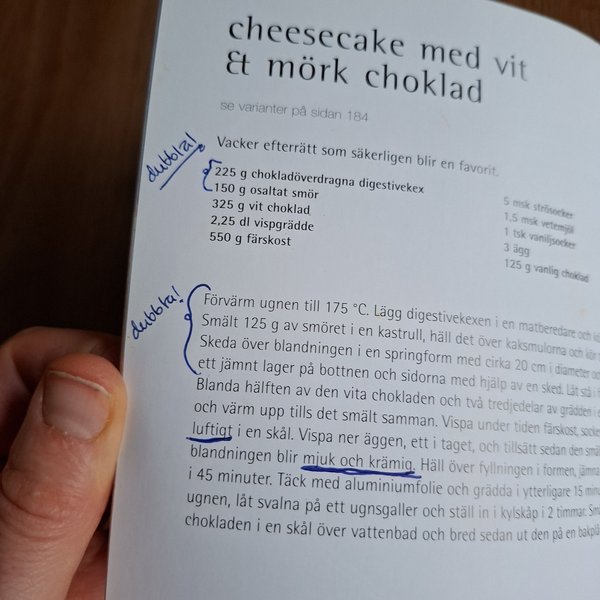 cheesecake med vit
& mörk choklad
se varianter på sidan 184
dubbla!
Vacker efterrätt som säkerligen blir en favorit.
225 g chokladöverdragna digestivekex
150 g osaltat smör
325 g vit choklad
2,25 dl vispgrädde
550 g färskost
5 msk strösocker
1,5 msk vetemjöl
1 tsk vaniljsocker
3 ägg
125 g vanlig choklad
dubbla!
Förvärm ugnen till 175 °C. Lägg digestivekexen i en matberedare och
Smält 125 g av smöret i en kastrull, häll det över kaksmulorna och kör
Skeda över blandningen i en springform med cirka 20 cm i diameter
ett jämnt lager på bottnen och sidorna med hjälp av en sked. Låt stå i
Blanda hälften av den vita chokladen och två tredjedelar av grädden
och värm upp tills det smält samman. Vispa under tiden färskost,
luftigt i en skål. Vispa ner äggen, ett i taget, och tillsätt sedan den
blandningen blir mjuk och krämig. Häll över fyllningen i formen,
i 45 minuter. Täck med aluminiumfolie och grädda i ytterligare 15
ugnen, låt svalna på ett ugnsgaller och ställ in i kylskåp i 2 timmar.
chokladen i en skål över vattenbad och bred sedan ut den på en